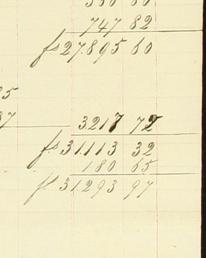 747 82
f 27.895 60
5
7
3217 72
f 31.113 32
180 65
f 31.293 97